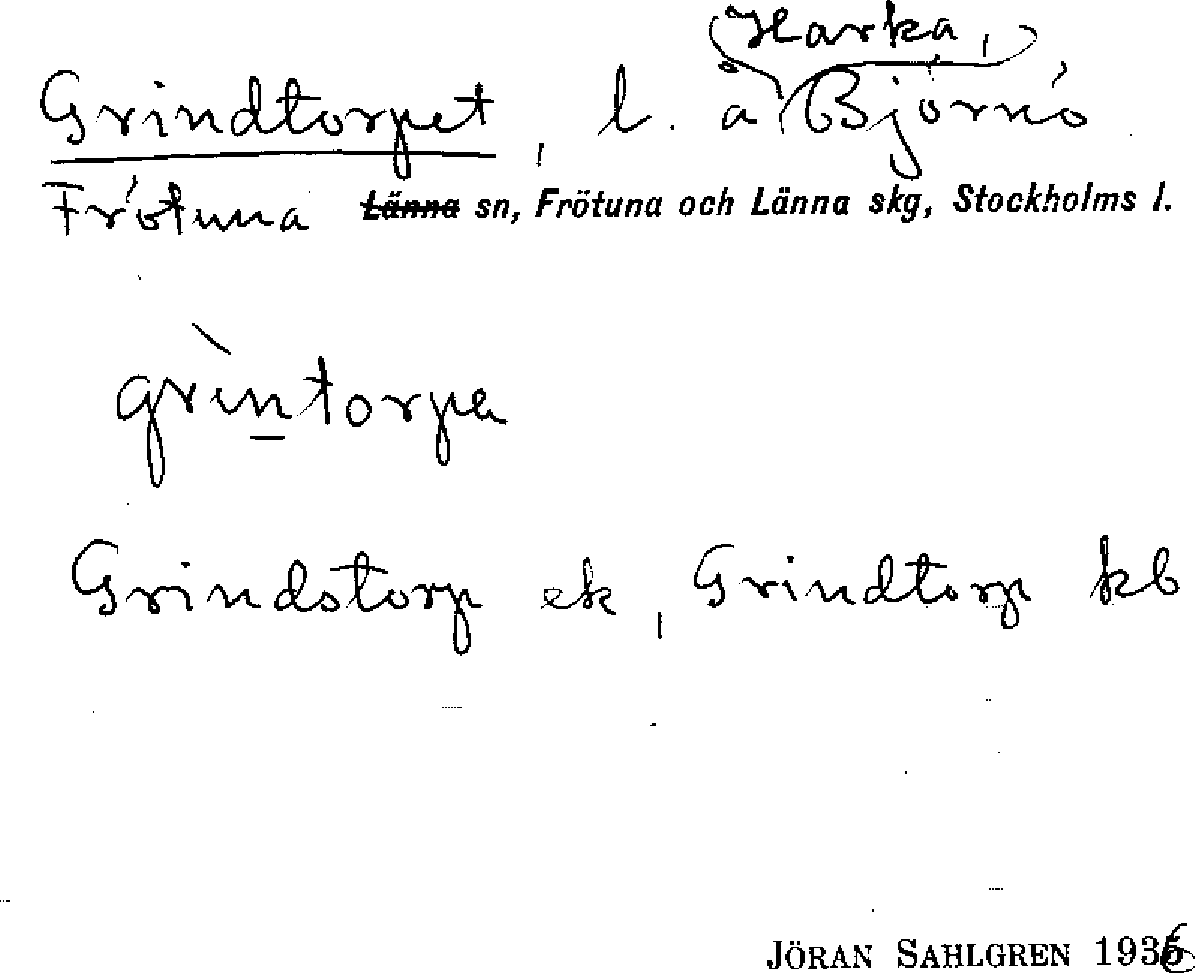 Harka,
Grindtorpet, l. å Björnö
Frötuna Länna sn, Frötuna och Länna skg, Stockholms l.
grìntorpa
Grindstorp ek, Grindtorp kb
JÖRAN SAHLGREN 1936